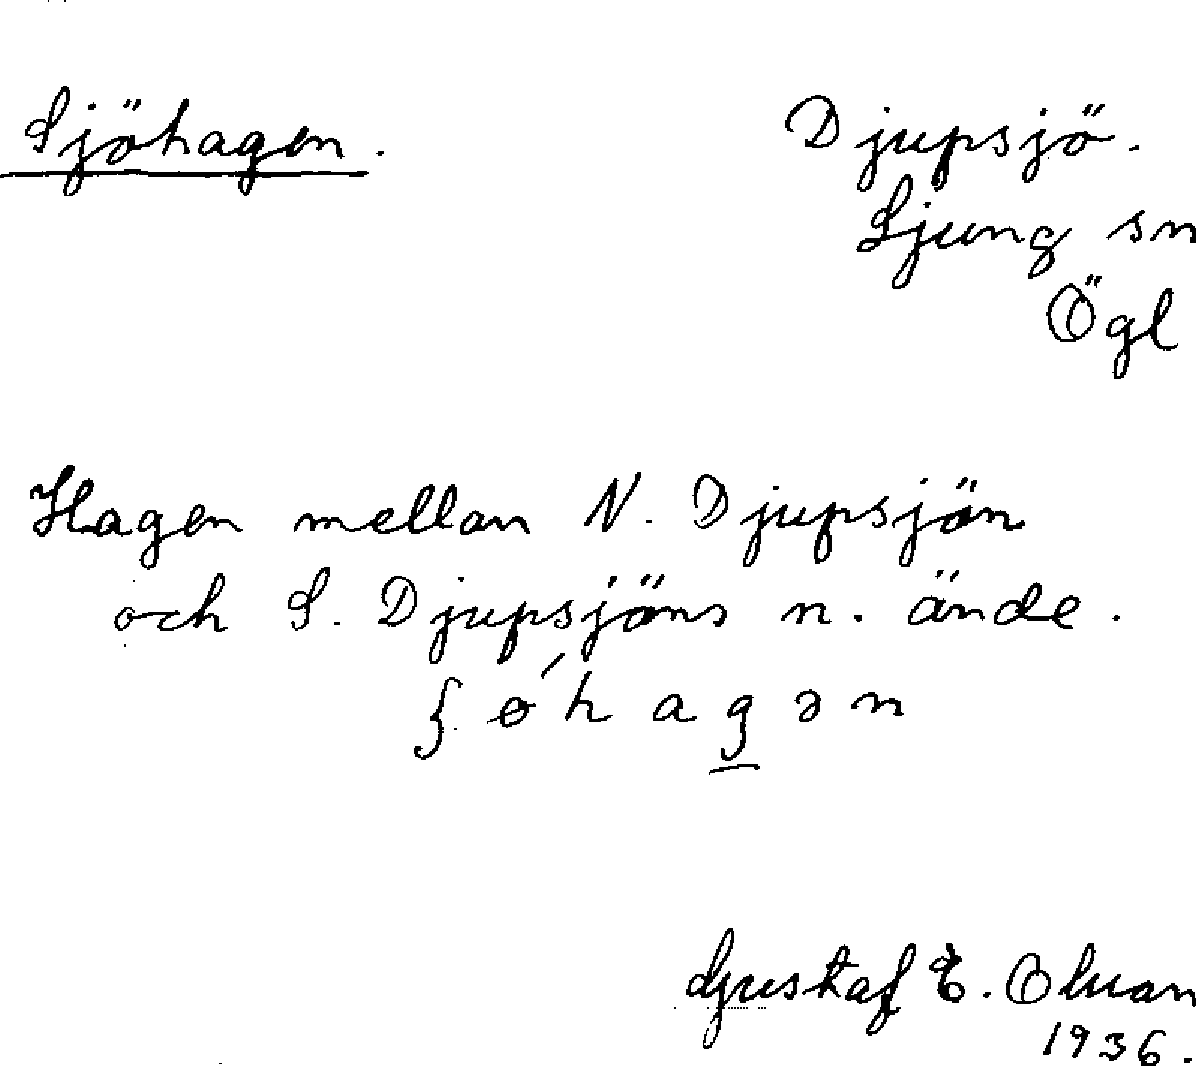 Sjöhagen.
Djupsjö.
Ljung sn
Ögl
Hagen mellan N. Djupsjön
och S. Djupsjöns n. ände.
Gustaf E.
1936.